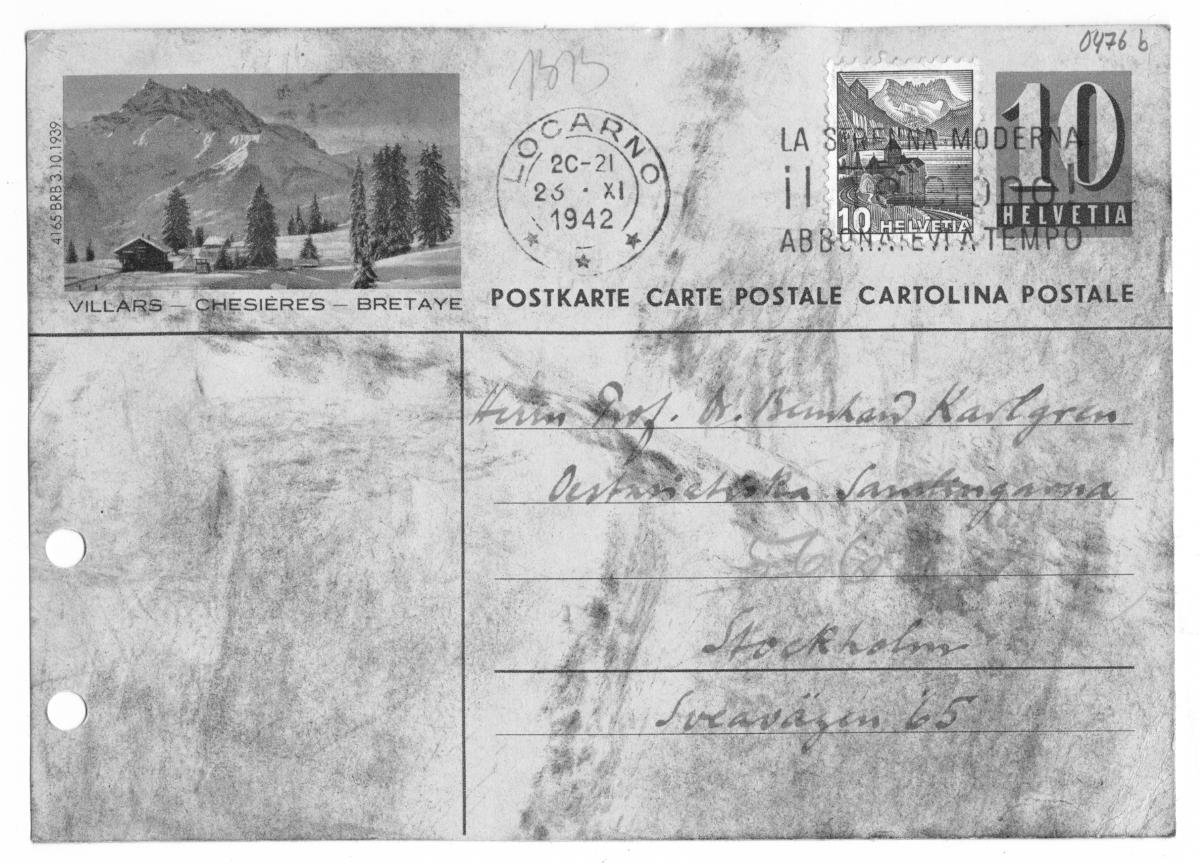 0476 b
4165 BRB 3.10.1939.
LOCARNO
20-21
23 · XI
1942
LA STRENNA MODERNA
il
ABBONATEVI A TEMPO
10
HELVETIA
10
HELVETIA
VILLARS — CHESIÈRES — BRETAYE
POSTKARTE CARTE POSTALE CARTOLINA POSTALE
Herrn Prof. Dr. Bernhard Karlgren
Oestasiatiska Samlingarna
Stockholm
Sveavägen 65